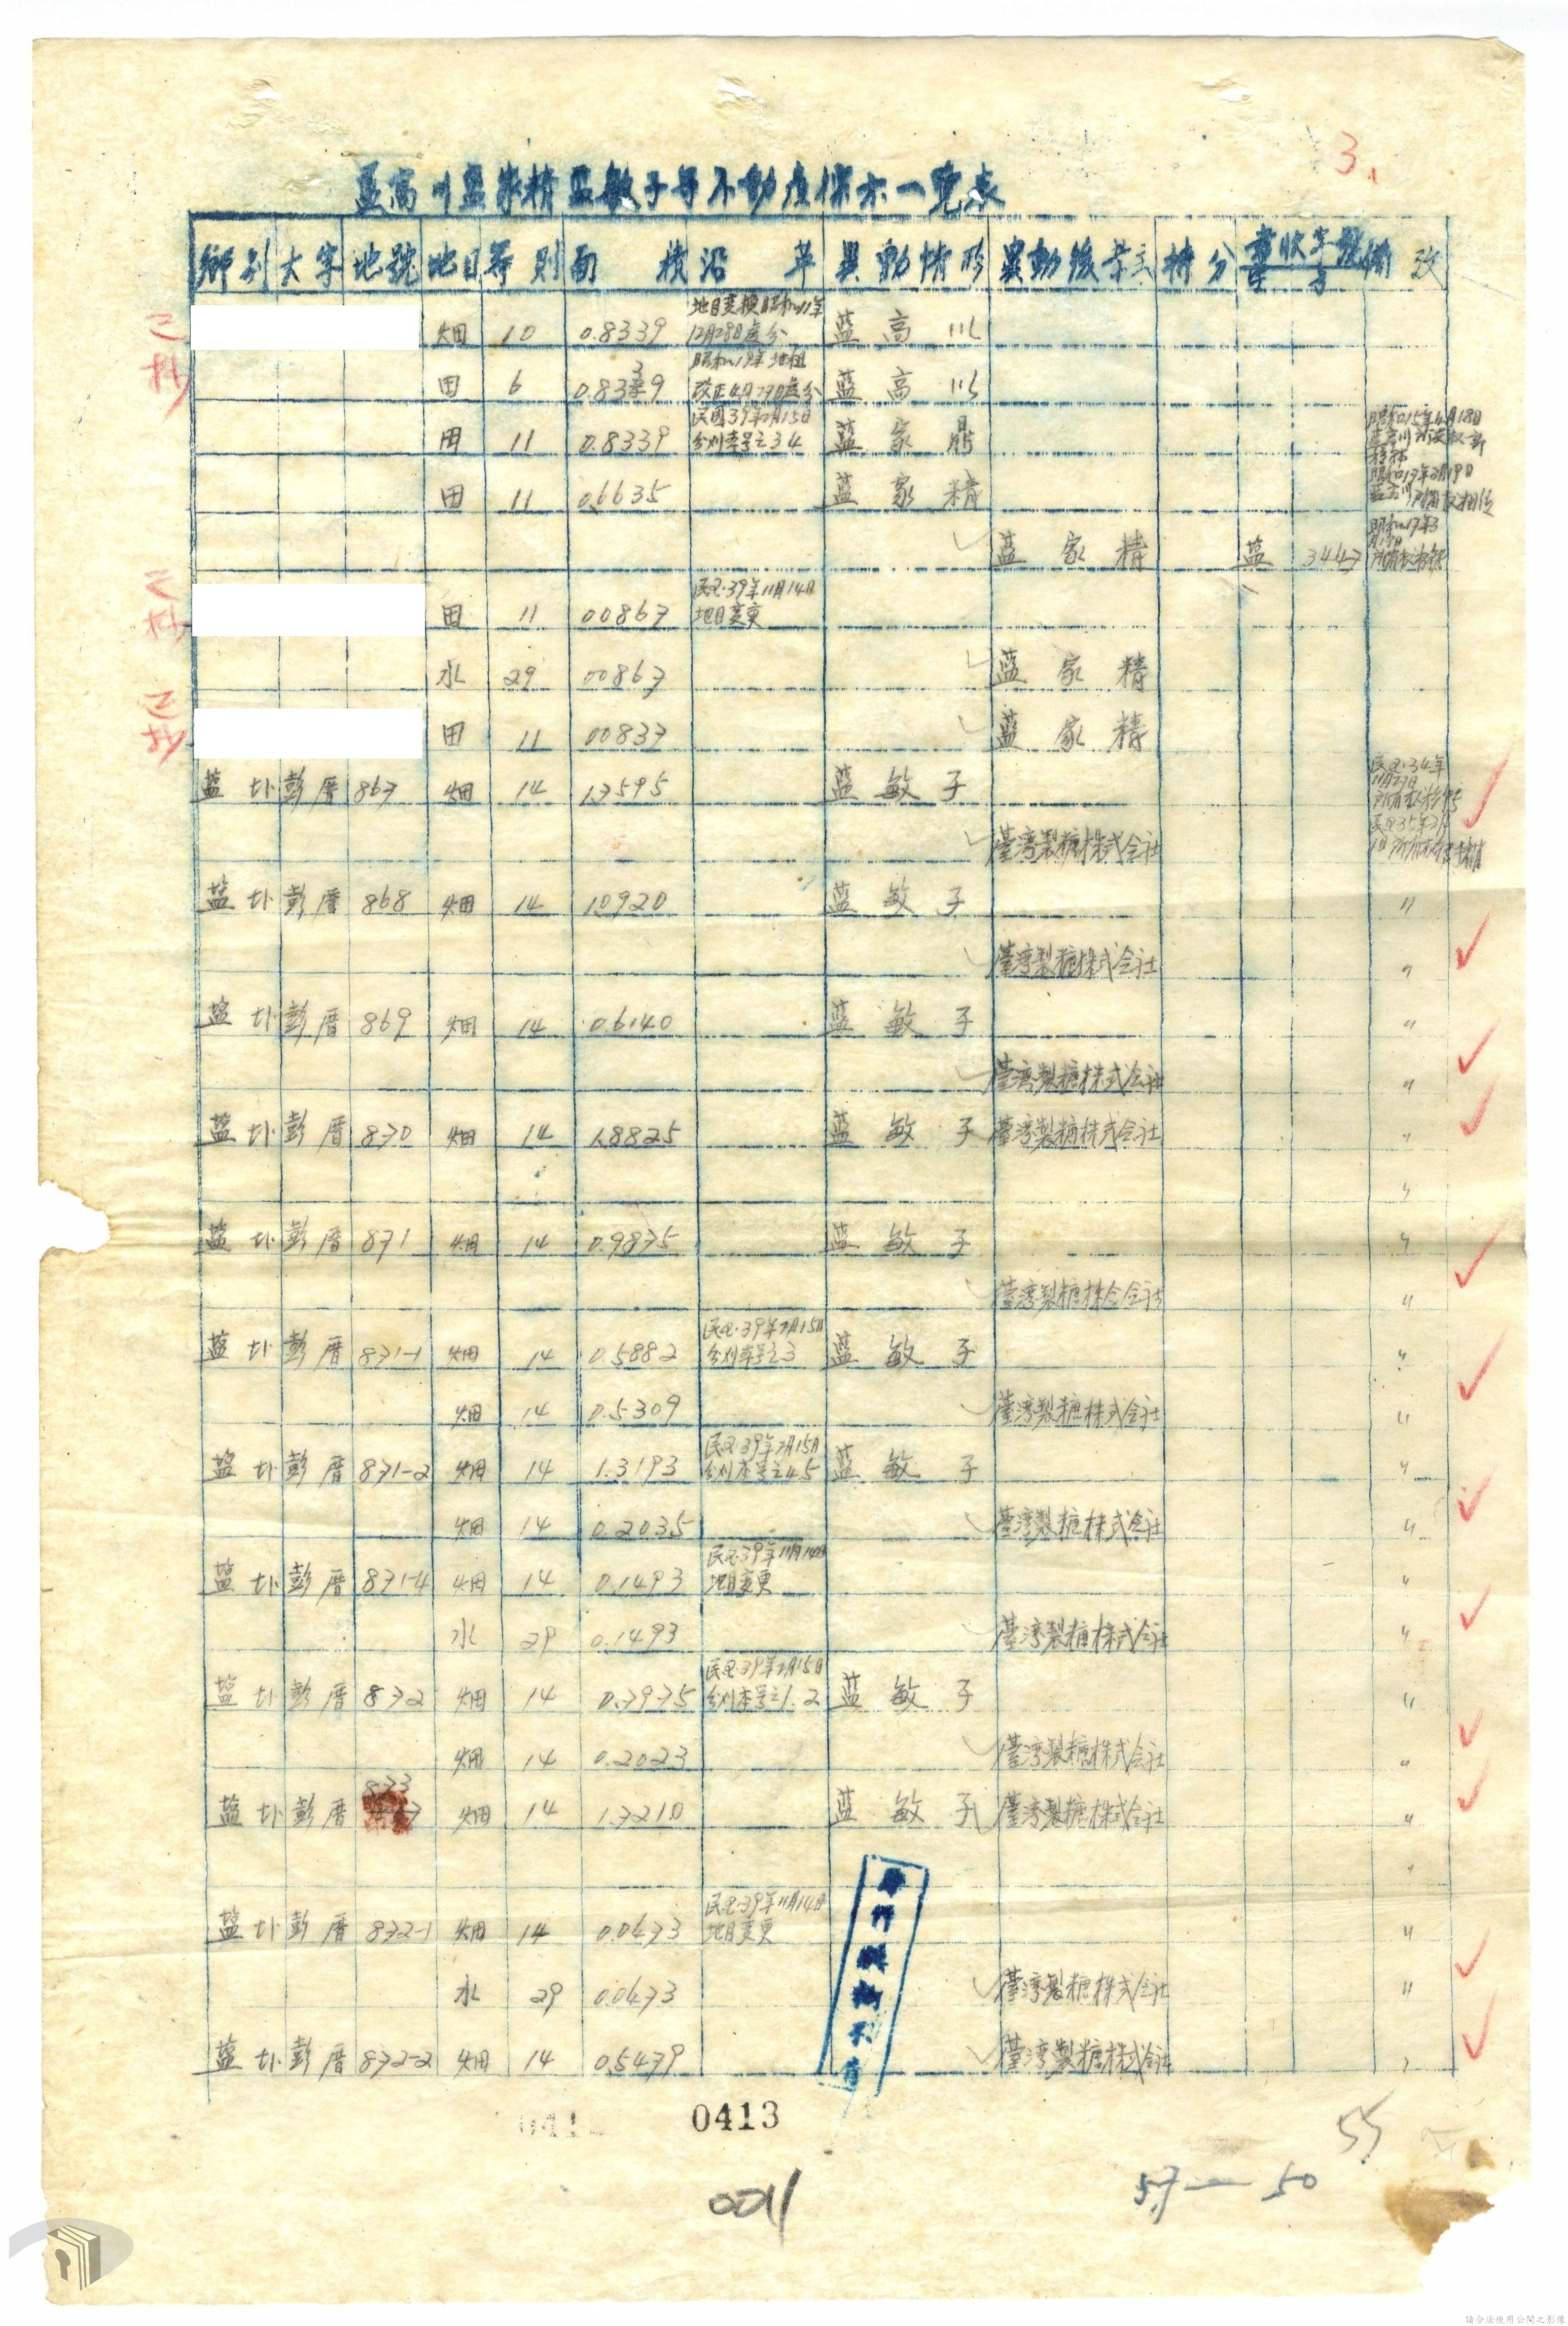 3、
藍高川藍家精藍敏子等不動產標示一覽表
鄉別 大字 地號 地目 等則 面積 沿革 異動情形 異動後業主 持分 書狀字號 備攷
已抄 畑 10 0.8339 地目変換昭和11年12月28日処分 藍高川
田 6 0.8339 昭和19年地租改正4月29日処分 藍高川
田 11 0.8339 民國39年7月15日分割本号之34 藍家鼎
田 11 0.6635 藍家精
藍家精 藍 3447
已抄 田 11 00867 民國39年11月14日地目変更
水 29 00867 藍家精
已抄 田 11 00837 藍家精
藍圤 彭厝 867 畑 14 1.7595 藍敏子
臺湾製糖株式会社
藍圤 彭厝 868 畑 14 1.0920 藍敏子 〃
臺湾製糖株式会社 〃
塩圤 彭厝 869 畑 14 0.6140 藍敏子 〃
臺湾製糖株式会社 〃
塩圤 彭厝 870 畑 14 1.8825 藍敏子 臺湾製糖株式会社 〃
〃
塩圤 彭厝 871 畑 14 0.9875 藍敏子 〃
臺湾製糖株会会社 〃
塩圤 彭厝 871-1 畑 14 0.5882 民國39年7月15日分割本号之3 藍敏子 〃
畑 14 0.5309 臺湾製糖株式会社 〃
塩圤 彭厝 871-2 畑 14 1.3193 民國39年7月15日分割本号之4.5 藍敏子 〃
畑 14 0.2035 臺湾製糖株式会社 〃
塩圤 彭厝 871-4 畑 14 0.1493 民國39年11月14日地目変更 〃
水 29 0.1493 臺湾製糖株式会社 〃
塩圤 彭厝 872 畑 14 0.7975 民國39年7月15日分割本号之1.2 藍敏子 〃
畑 14 0.2023 臺湾製糖株式会社 〃
塩圤 彭厝 873 畑 14 1.7210 藍敏子 臺湾製糖株式会社 〃
〃
塩圤 彭厝 872-1 畑 14 0.0473 民國39年11月14日地目変更 〃
水 29 0.0473 臺湾製糖株式会社 〃
塩圤 彭厝 872-2 畑 14 0.5479 臺湾製糖株式会社 〃
0413
0011
55
57—50
請合法使用公開之影像